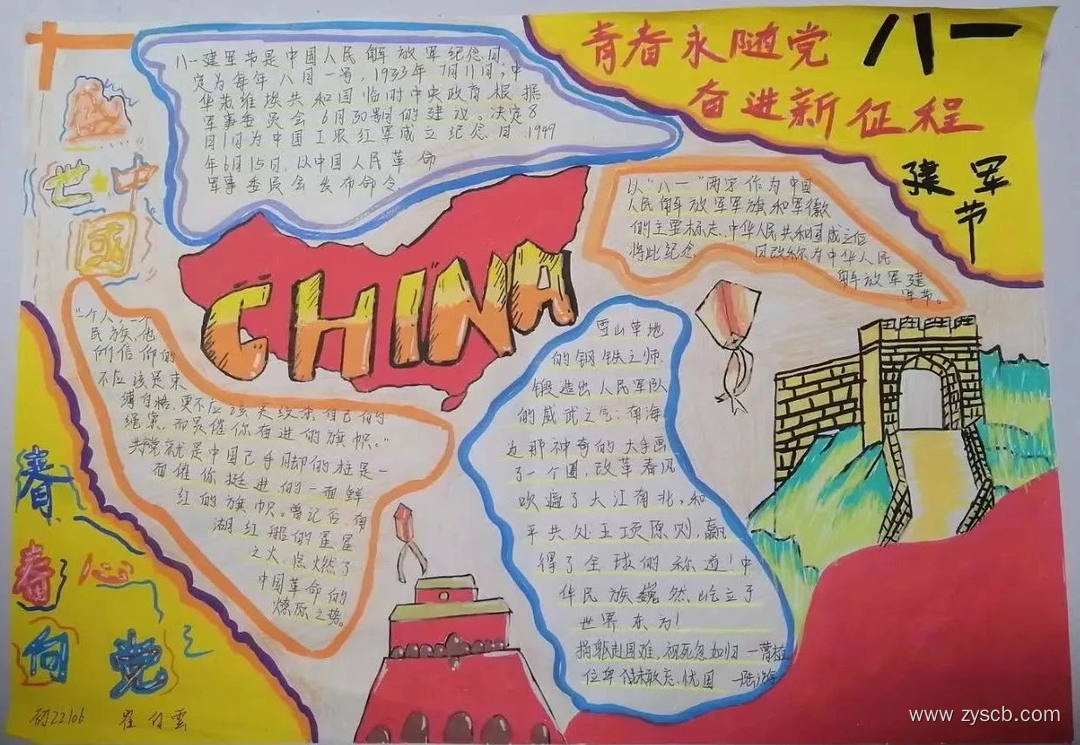 十一
盛
世中
國
八一建军节是中国人民解放军纪念日,
定为每年八月一号,1933年7月11日,中
华苏维埃共和国临时中央政府根据
军事委员会6月30日的建议。决定8
月1日为中国工农红军成立纪念日1949
年6月15日,以中国人民革命
军事委员会发布命令
青春永随党
奋进新征程
八一
建军
节
以"八一"两字作为中国
人民解放军军旗和军徽
的主要标志、中华人民共和国成立后
将此纪念 日改称为中华人民
解放军建
军节。
CHINA
"一个人,一个
民族,他
们信仰的
不应该是束
缚自格,更不应该是绞杀自己的
绳索,而是催你奋进的旗帜。"
共党就是中国己手脚的桎是一
面催你挺进的一面鲜
红的旗帜。曾记否,南
湖红船的星星
之火,点燃了
中国革命的
燎原之势。
雪山草地
的钢铁之师.
锻造出人民军队
的威武之气:南海
边那神奇的大手画
了一个圆,改革春风
吹遍了大江南北,和
平共处五项原则,赢
得了全球的称道!中
华民族巍然屹立于
世界东方!
捐躯赴国难,视死忽如归 一曹植
位卑 未敢忘忧国 一陆游
青
春心
向党
初2206
www.zyscb.com